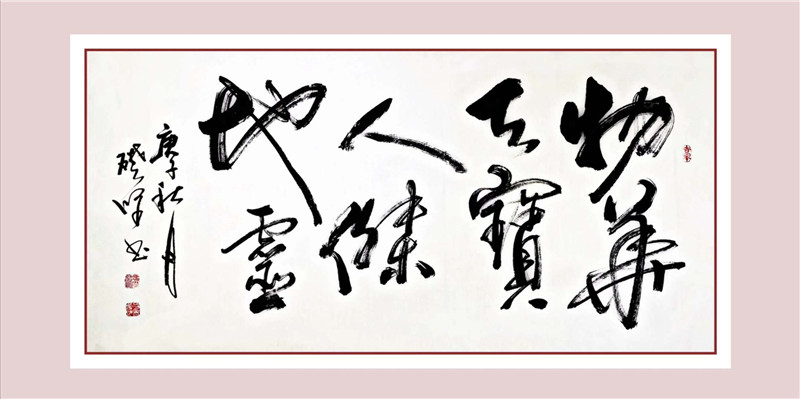 物華
天寶
人傑
地靈
庚子秋月
书